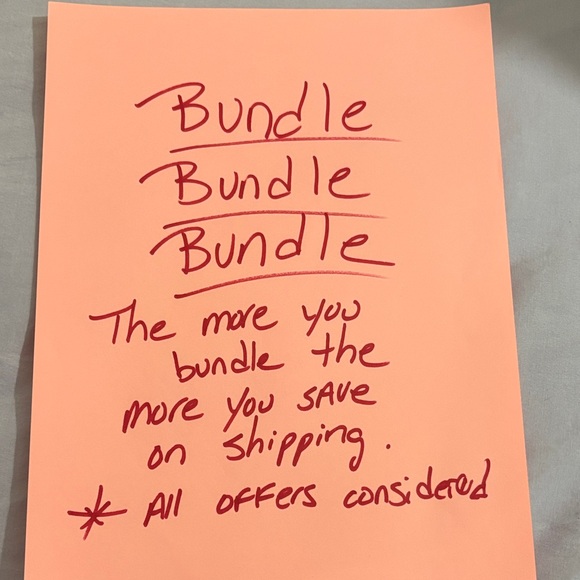 Bundle
Bundle
Bundle
The more you
bundle the
more you save
on shipping.
* All offers considered